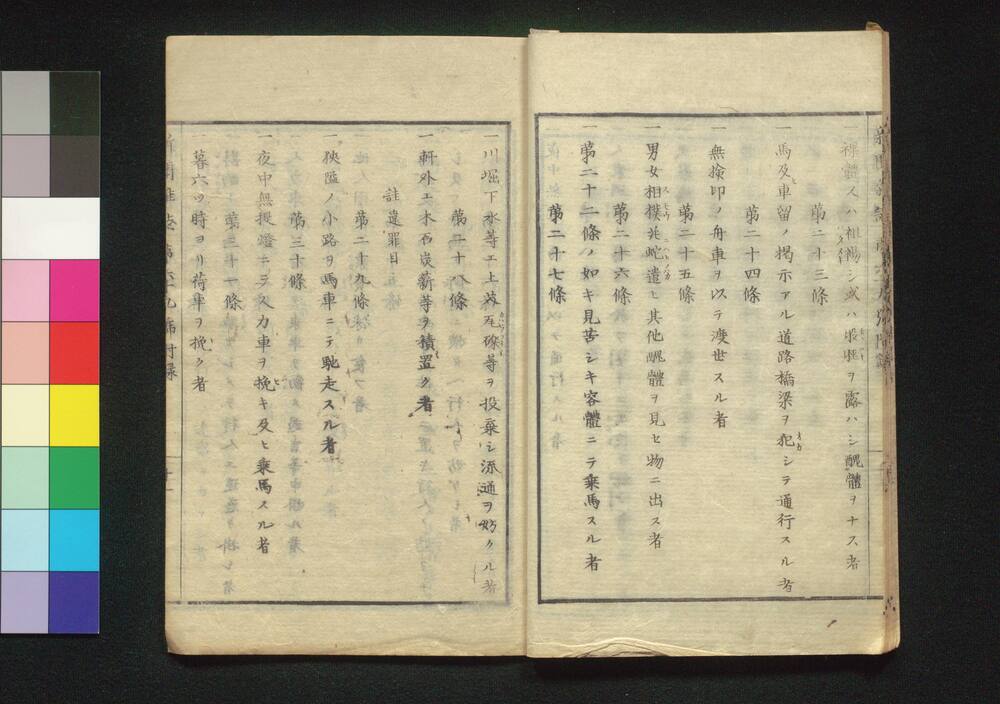 一裸體又ハ袒裼シ或ハ股脛ヲ露ハシ醜體ヲナス者
第二十三條
一馬及車留ノ掲示アル道路橋梁ヲ犯シテ通行スル者
第二十四條
一無撿印ノ舟車ヲ以テ渡世スル者
第二十五條
一男女相撲並蛇遣ヒ其他醜體ヲ見セ物ニ出ス者
第二十六條
一第二十二條ノ如キ見苦シキ容體ニテ乗馬スル者
第二十七條
一川堀下水等エ土芥瓦礫等ヲ投棄シ流通ヲ妨クル者
第二十八條
一軒外エ木石炭薪等ヲ積置ク者
註違罪目
第二十九條
一狹隘ノ小路ヲ馬車ニテ馳走スル者
第三十條
一夜中無提燈ニテ人力車ヲ挽キ及ヒ乗馬スル者
第三十一條
一暮六ツ時ヨリ荷車ヲ挽ク者